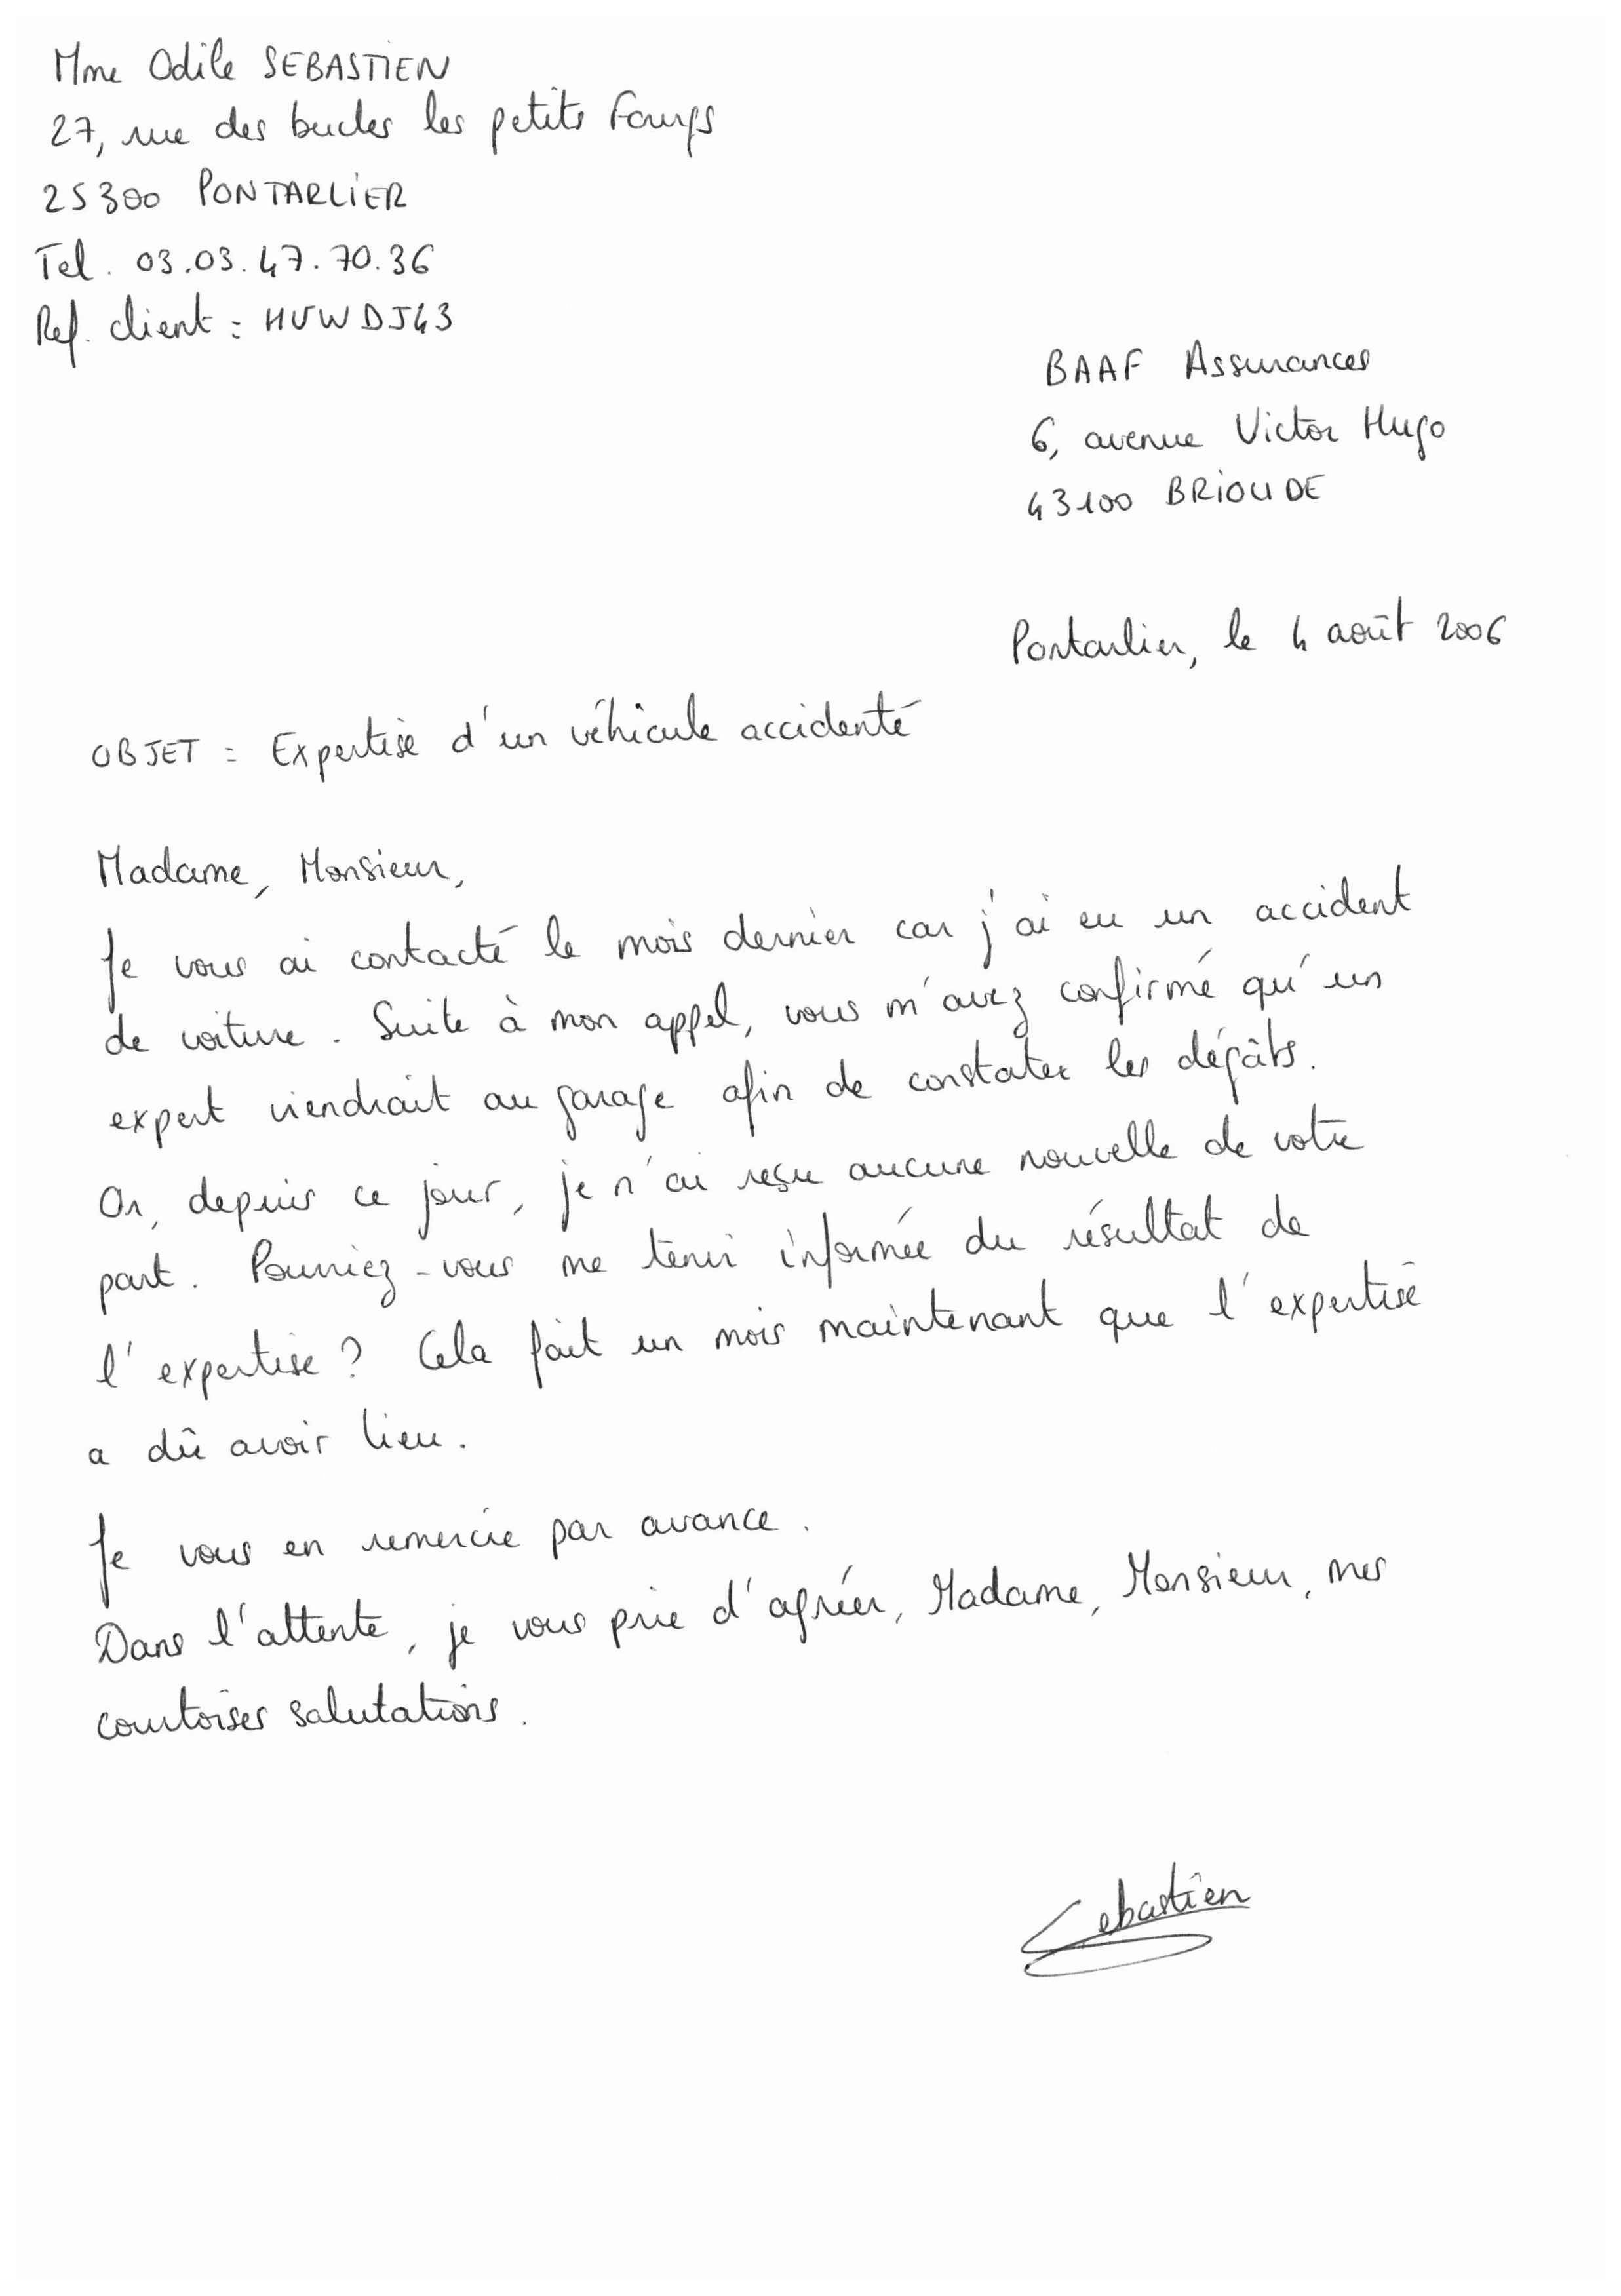 Mme Odile SEBASTIEN
27, rue des bucles les petits Fourgs
25300 PONTARLIER
Tel. 03.03.47.70.36
Ref. client : HUWDJ43
BAAF Assurances
6, avenue Victor Hugo
43100 BRIOUDE
Pontarlier, le 4 août 2006
OBJET : Expertise d'un véhicule accidenté
Madame, Monsieur,
Je vous ai contacté le mois dernier car j'ai eu un accident
de voiture. Suite à mon appel, vous m'avez confirmé qu'un
expert viendrait au garage afin de constater les dégâts.
Or, depuis ce jour, je n'ai reçu aucune nouvelle de votre
part. Pourriez-vous me tenir informée du résultat de
l'expertise ? Cela fait un mois maintenant que l'expertise
a dû avoir lieu.
Je vous en remercie par avance.
Dans l'attente, je vous prie d'agréer, Madame, Monsieur, mes
courtoises salutations.
Sebastien